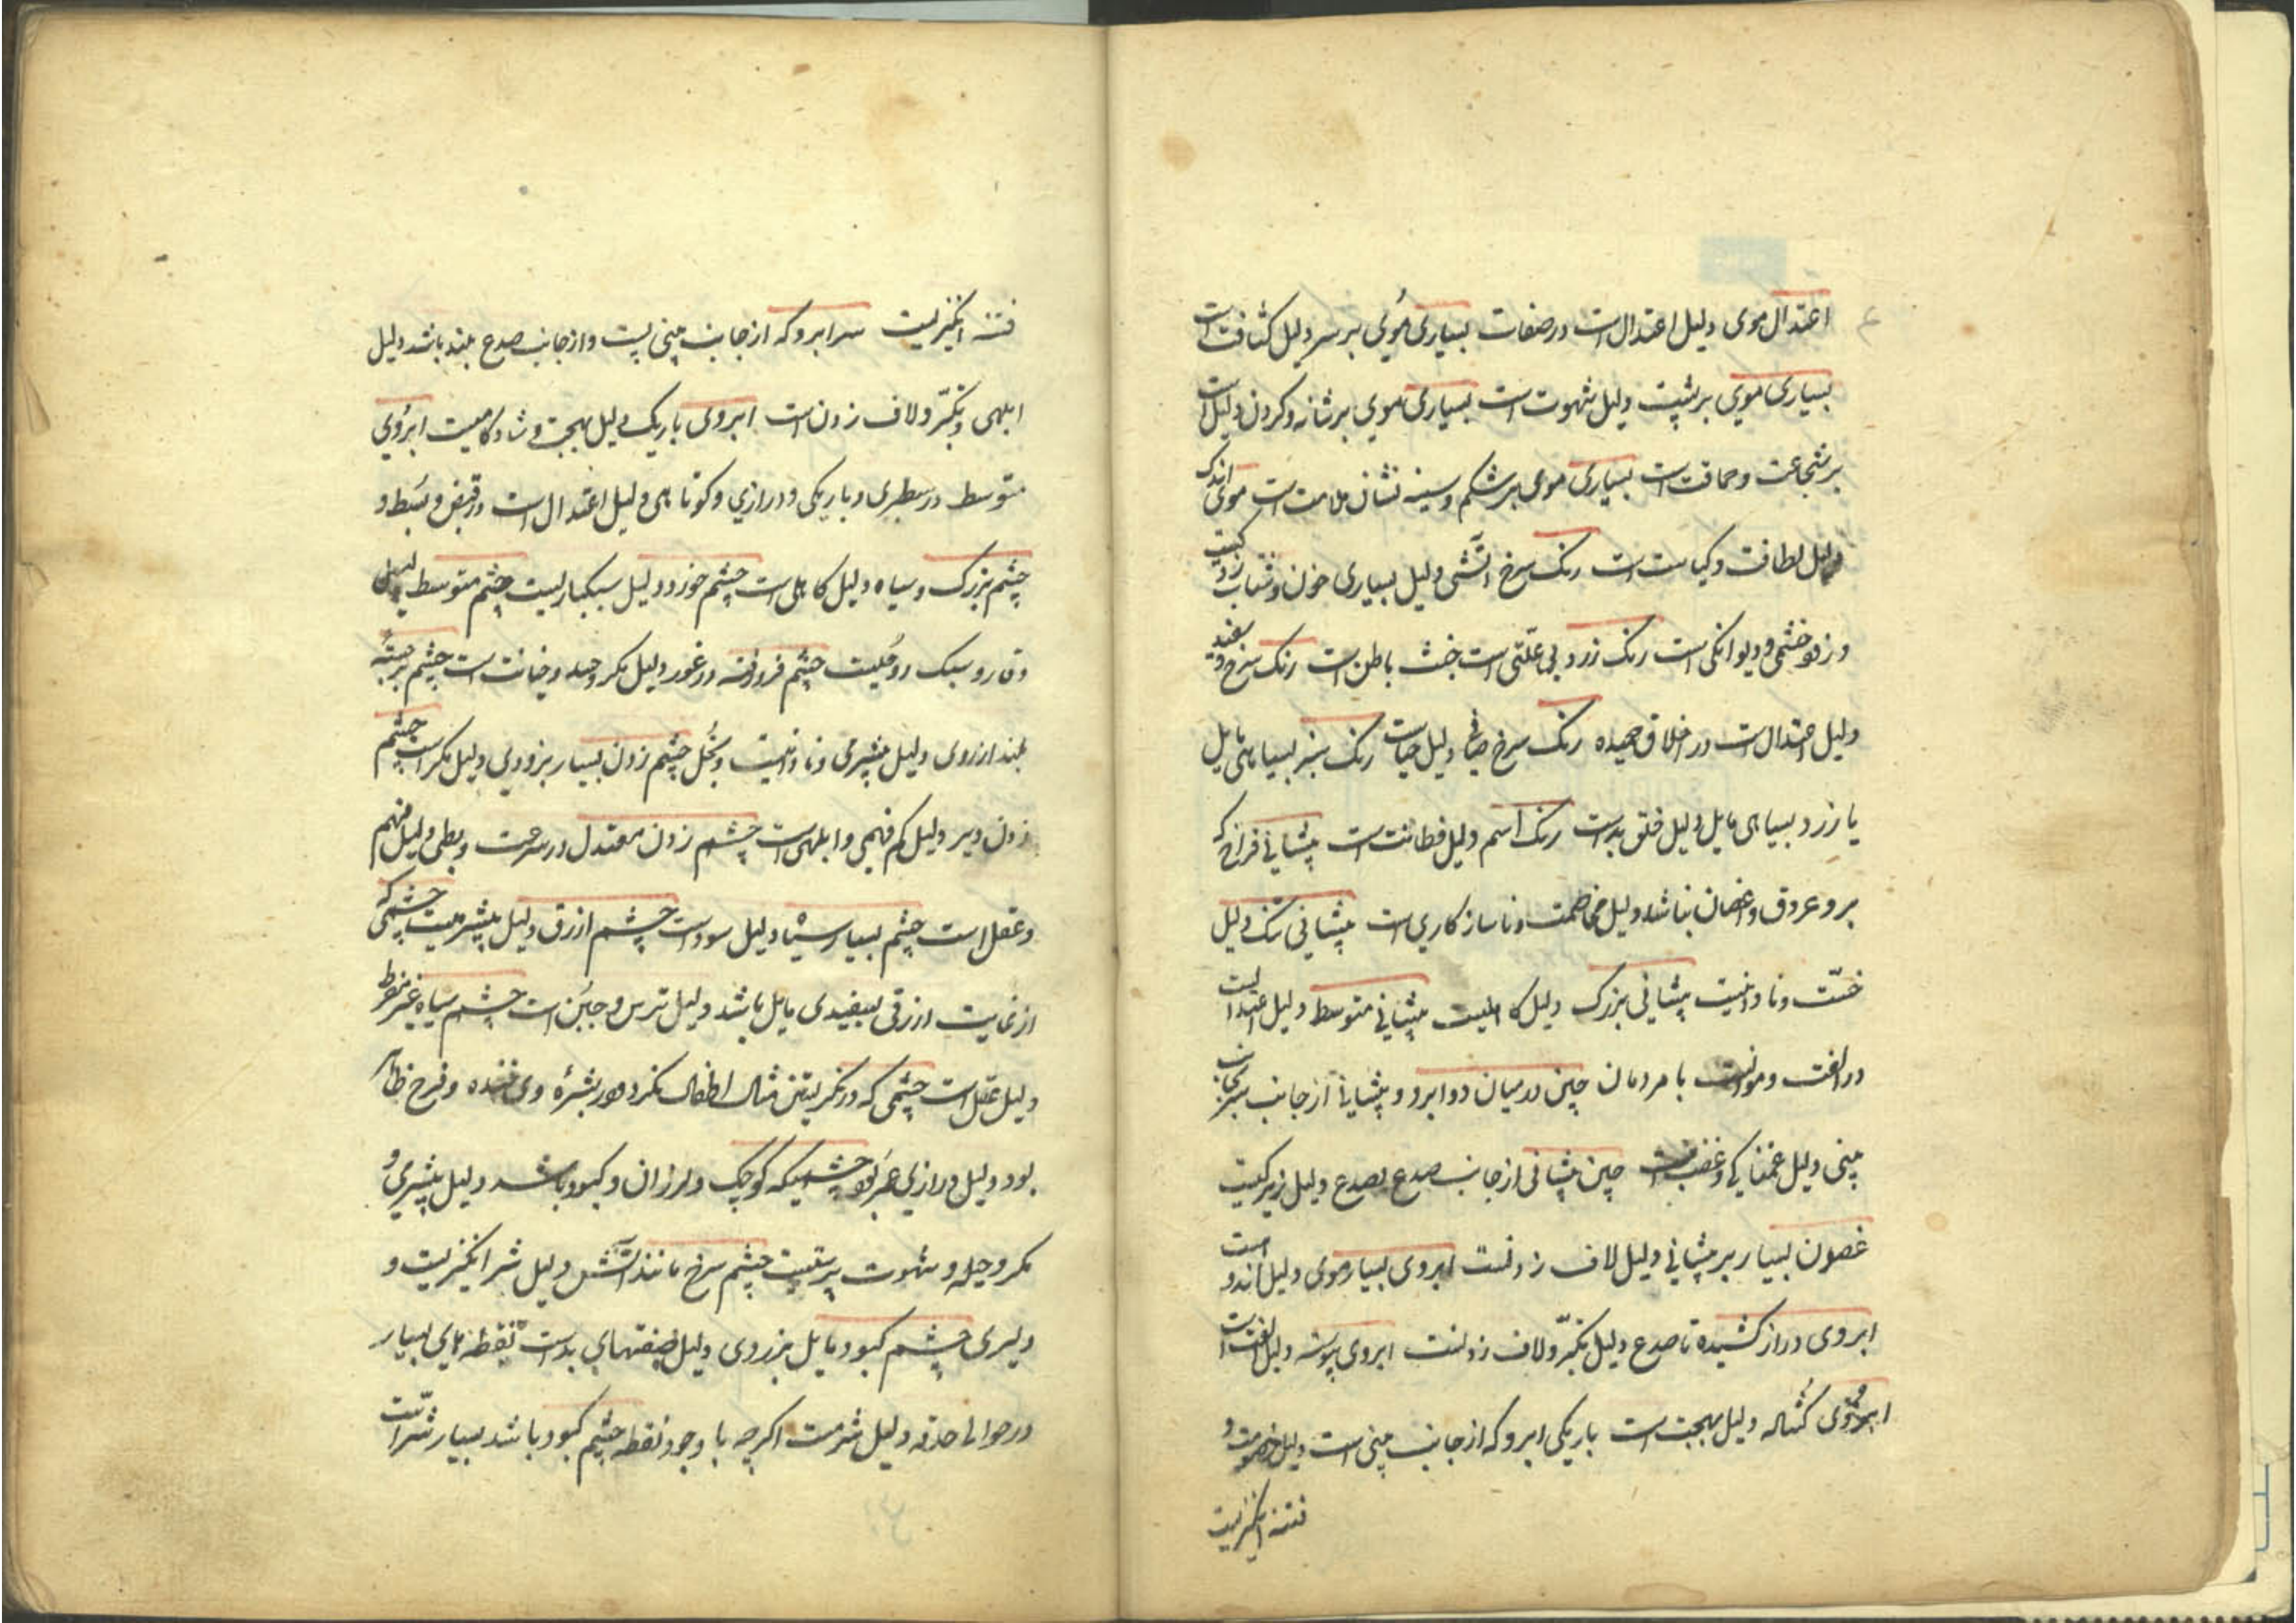 اعتدال موی دلیل اعتدال است در صفات بسیاری مُوی بر سر دلیل کثافت است
بسیاری موی بر پشت دلیل شهوت است بسیاری موی بر شانه و کردن دلیل است
بر شجاعت و حماقت است بسیاری موی بر شکم و سینه نشان ملامت است موی اندک
دلیل لطافت و کیاست است رنک سرخ آتشی دلیل بسیاری خون و شتاب زدکیست
و زود خشمی و دیوانکی است رنک زرد بی علّتی است خبث باطن است رنک سرخ و سفید
دلیل اعتدال است در اخلاق حمیده رنک سرخ صافی دلیل حیاست رنک سبز بسیاهی مایل
یا زرد بسیاهی مایل دلیل خلق بد است رنک اسم دلیل فطانت است پیشانی فراخ که
برو عروق و غضان نباشد دلیل مخاصمت و ناسازکاری است پیشانی تنک دلیل
خسّت و نادانیست پیشانی بزرک دلیل کاهلیست پیشانی متوسط دلیل اعتدالست
در الفت و موانست با مردمان چین در میان دو ابرو و پیشانی از جانب سر بجانب
بینی دلیل غمناکی و غضبست چین پیشانی از جانب صدع بصدع دلیل زیرکیست
غصون بسیار بر پیشانی دلیل لاف زدنست ابروی بسیار موی دلیل اندوه است
ابروی دراز کشیده تا صدع دلیل تکبّر و لاف زدنست ابروی پیوسته دلیل الفت است
ابروی کُشاله دلیل بهجت است باریکی ابرو که از جانب بینی است دلیل خصومت و
فتنه انکیزیست
فتنه انکیزیست سر ابرو که از جانب بینی پست و از جانب صدع بلند باشد دلیل
ابلهی و تکبّر و لاف زدن است ابروی باریک دلیل بهجت و شادکامیست ابرُوی
متوسط در سطبری و باریکی و درازی و کوتاهی دلیل اعتدال است در قبض و بسَط و
چشم بزرک و سیاه دلیل کاهلی است چشم خورد دلیل سبکباریست چشم متوسط دلیل
وقار و سبک روحیست چشم فرو رفته در غور دلیل مکر و حسد و خیانت است چشم برجسته
بلند از روی دلیل بیشرمی و نادانیست و بخُل چشم زدن بسیار بزودی دلیل مکر است چشم
زدن دیر دلیل کم فهمی و ابلهی است چشم زدن معتدل در سرعت و بطی دلیل فهم
و عقل است چشم بسیار سیاه دلیل سوداست چشم ازرق دلیل بیشرمیست چشمی که
از غایت ازرقی بسفیدی مایل باشد دلیل ترس و جبُن است چشم سیاه غیر مفرط
دلیل عقل است چشمی که در نکریستن مثال اطفال نکرد و در بشرهٔ وی خنده و فرح ظاهر
بود دلیل درازی عمر بود چشمیکه کوچک و لرزان و کبود باشد دلیل بیشرمی و
مکر و حیله و شهوت پرستیست چشم سرخ مانند آتش دلیل شر انکیزیست و
دلیری چشم کبود مایل بزردی دلیل صفتهای بد است نقطه های بسیار
در حوالی حدقه دلیل شرمست اکرچه با وجود نقطه چشم کبود باشد بسیار شرّاست